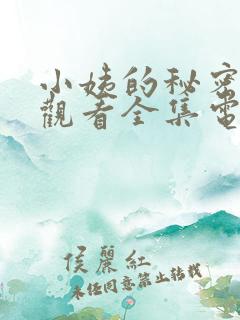 小姨的秘密
觀看全集電
侯麗紅
未经同意禁止转载